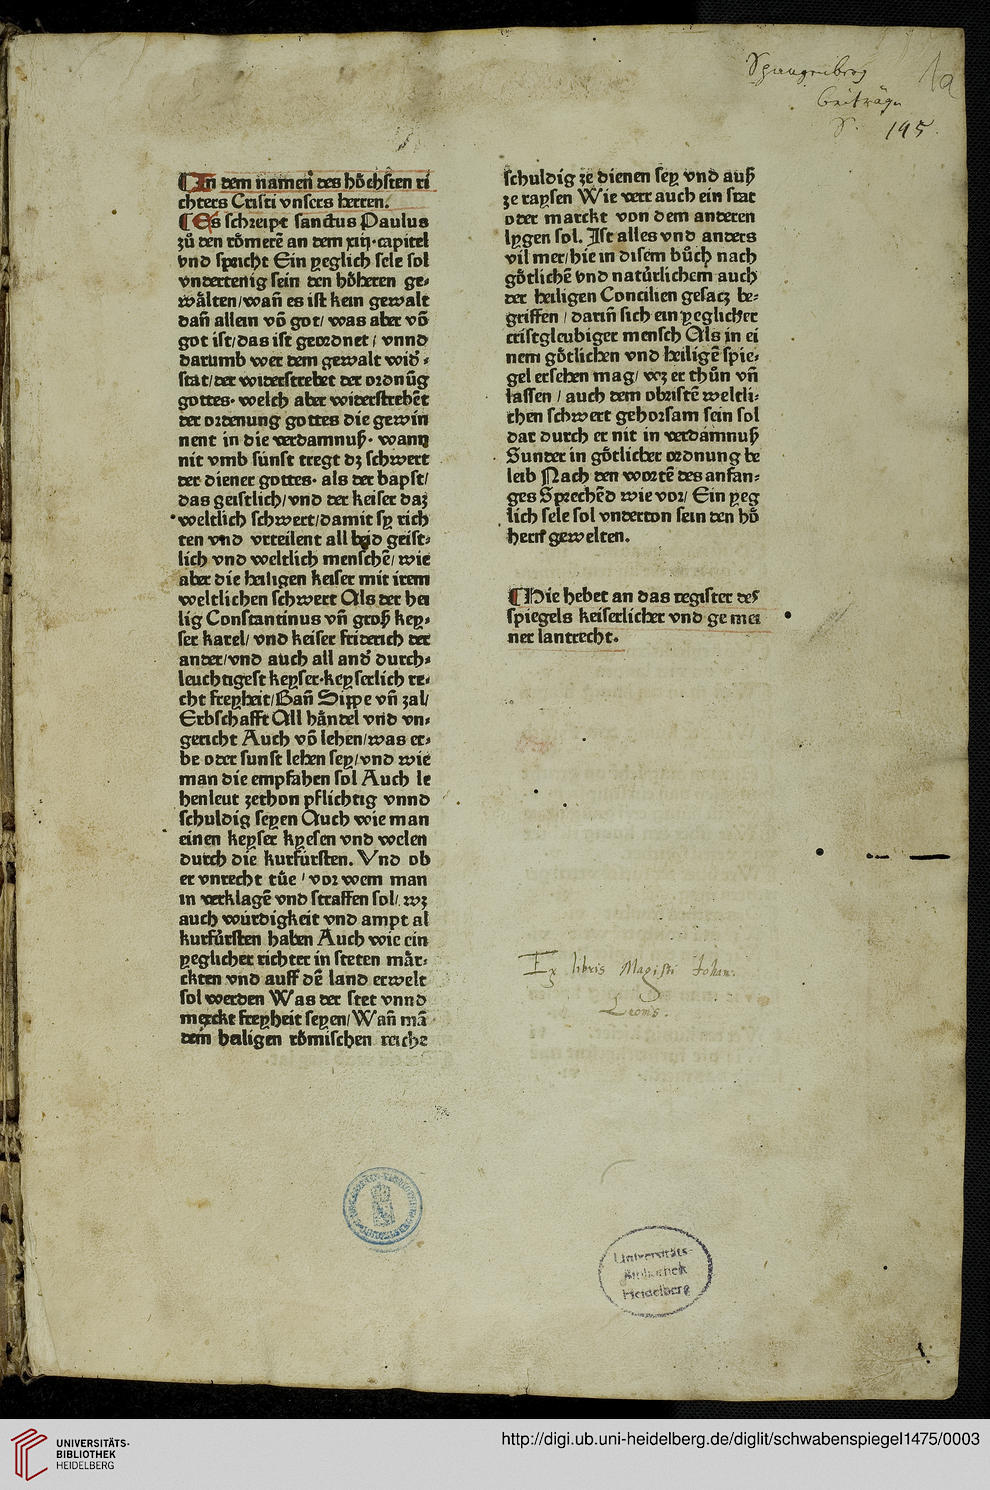 Spangenberg
Beiträge
S. 195.
1a
¶ In dem namen des hoͤchsten ri
chters Cristi vnsers herren.
¶ Es schreipt sanctus Paulus
zuͦ den roͤmerē an dem xiij·capitel
vnd spricht Ein yeglich sele sol
vndertenig sein den hoͤheren ge⸗
waͤlten/wañ es ist kein gewalt
dañ allein vō got/ was aber vō
got ist/das ist geordnet / vnnd
darumb wer dem gewalt wid̾ ⸗
stat/der widerstrebet der ordnūg
gottes· welch aber widerstrebēt
der ordenung gottes die gewin
nent in die verdamnuß· wann
nit vmb sunst tregt dz schwert
der diener gottes· als der bapst/
das geistlich/vnd der keiser daz
weltlich schwert/damit sy rich
ten vnd vrteilent all beid geist⸗
lich vnd weltlich menschē/ wie
aber die heiligen keiser mit irem
weltlichen schwert Als der hei
lig Constantinus vñ groß key⸗
ser karel/ vnd keiser friderich der
ander/vnd auch all and̾ durch⸗
leuchtigest keyser·keyserlich re⸗
cht freyheit/Bañ Sippe vñ zal/
Erbschafft All haͤndel vnd vn⸗
gericht Auch vō lehen/was er⸗
be oder sunst lehen sey/vnd wie
man die empfahen sol Auch le
henleut zethon pflichtig vnnd
schuldig seyen Auch wie man
einen keyser kyesen vnd welen
durch die kurfürsten. Vnd ob
er vnrecht tuͤe / vor wem man
in verklagē vnd straffen sol/ wz
auch wurdigkeit vnd ampt al
kurfürsten haben Auch wie ein
yeglicher richter in steten maͤr⸗
ckten vnd auff dē land erwelt
sol werden Was der stet vnnd
merckt freyheit seyen/Wañ mā
dem heiligen roͤmischen reiche
schuldig ze dienen sey vnd auß
ze raysen Wie verr auch ein stat
oder marckt von dem anderen
lygen sol. Ist alles vnd anders
vil mer/hie in disem buͦch nach
goͤtlichē vnd natuͤrlichem auch
der heiligen Concilien gesacz be⸗
griffen / dariñ sich ein yeglicher
cristgleubiger mensch Als in ei
nem goͤtlichen vnd heiligē spie⸗
gel ersehen mag/ wz er thuͦn vñ
lassen / auch dem obristē weltli⸗
chen schwert gehorsam sein sol
dar durch er nit in verdamnuß
Sunder in goͤtlicher ordnung be
leib Nach den wortē des anfan⸗
ges Sprechēd wie vor/ Ein yeg
lich sele sol vnderton sein den hoͤ
hern gewelten.
¶ Hie hebet an das register des
spiegels keiserlicher vnd ge mei
ner lantrecht.
Ex libris Magistri Johan:
Leonis.
Universitäts-
Bibliothek
Heidelberg
1
UNIVERSITÄTS-
BIBLIOTHEK
HEIDELBERG
http://digi.ub.uni-heidelberg.de/diglit/schwabenspiegel1475/0003